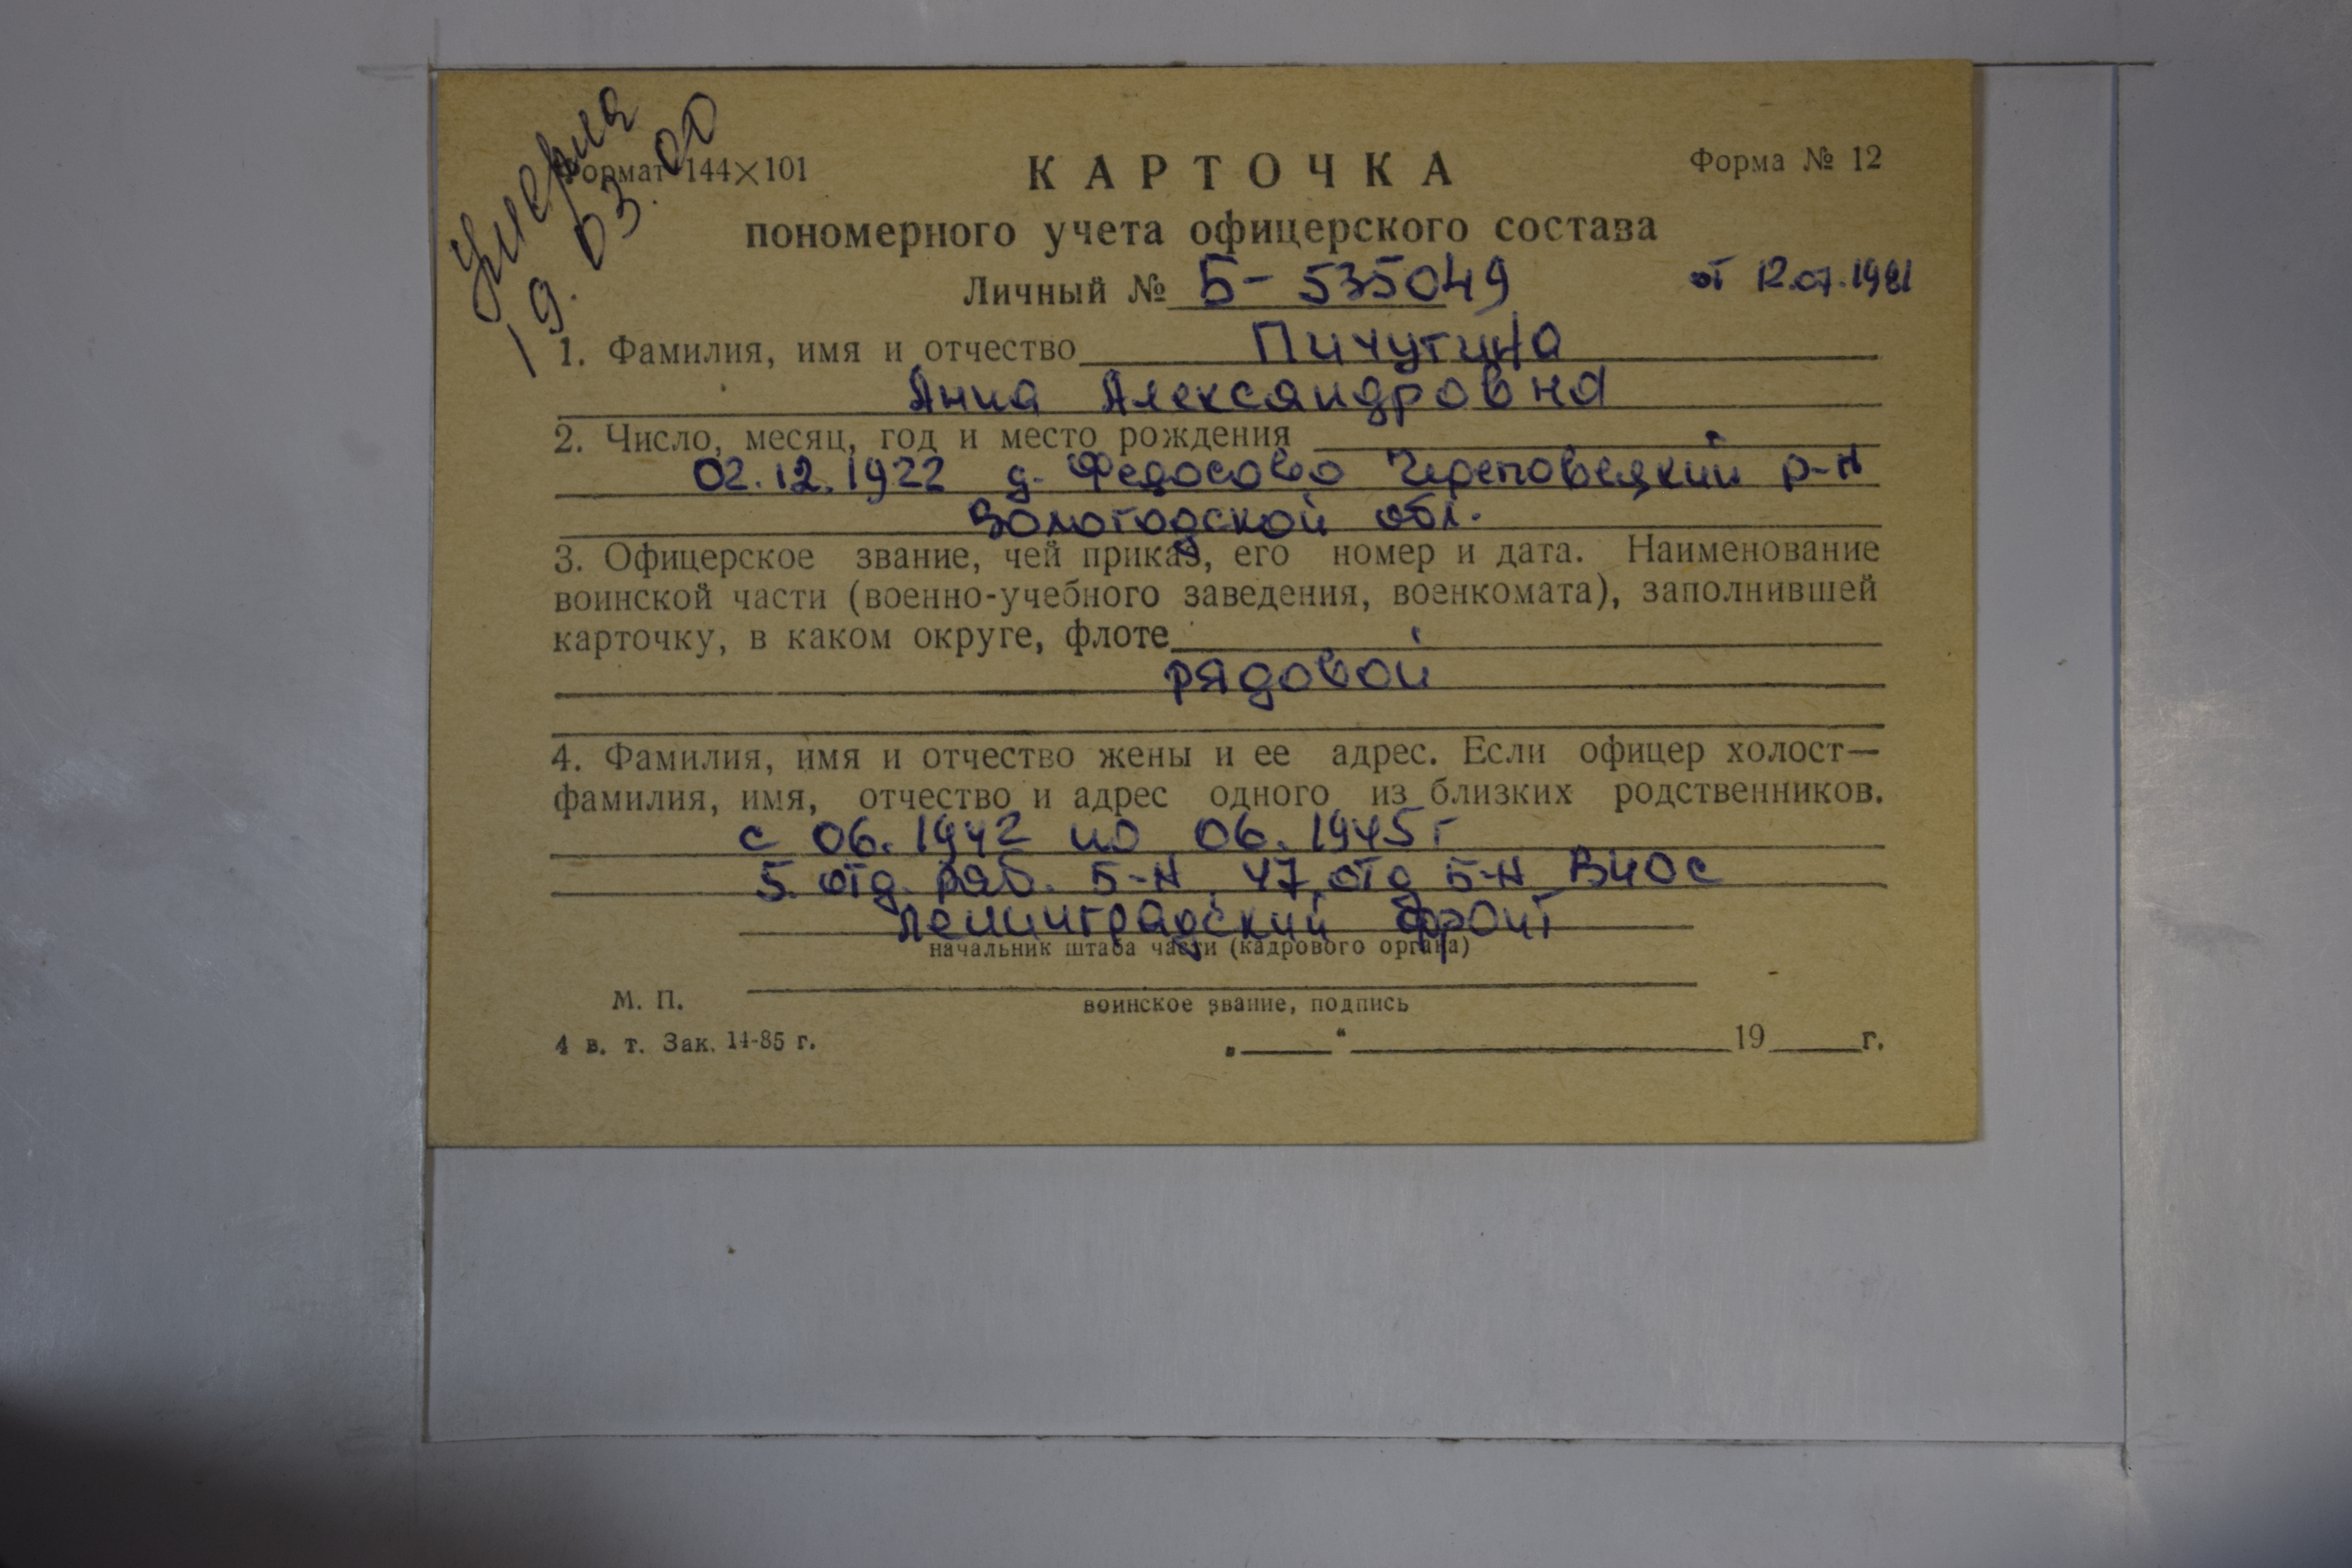 Умерла
19.03.00
Формат 144×101
Форма № 12
КАРТОЧКА
пономерного учета офицерского состава
Личный № Б-535049 от 12.07.1981
1. Фамилия, имя и отчество Пичугина
Анна Александровна
2. Число, месяц, год и место рождения
02.12.1922 д. Федосово Череповецкий р-н
Вологодской обл.
3. Офицерское звание, чей приказ, его номер и дата. Наименование
воинской части (военно-учебного заведения, военкомата), заполнившей
карточку, в каком округе, флоте
рядовой
4. Фамилия, имя и отчество жены и ее адрес. Если офицер холост—
фамилия, имя, отчество и адрес одного из близких родственников.
с 06.1942 по 06.1945 г
5 отд. раб. б-н, 47 отд б-н ВНОС
Ленинградский фронт
начальник штаба части (кадрового органа)
М. П.
воинское звание, подпись
4 в. т. Зак. 14-85 г.
„___“ ___ 19___г.